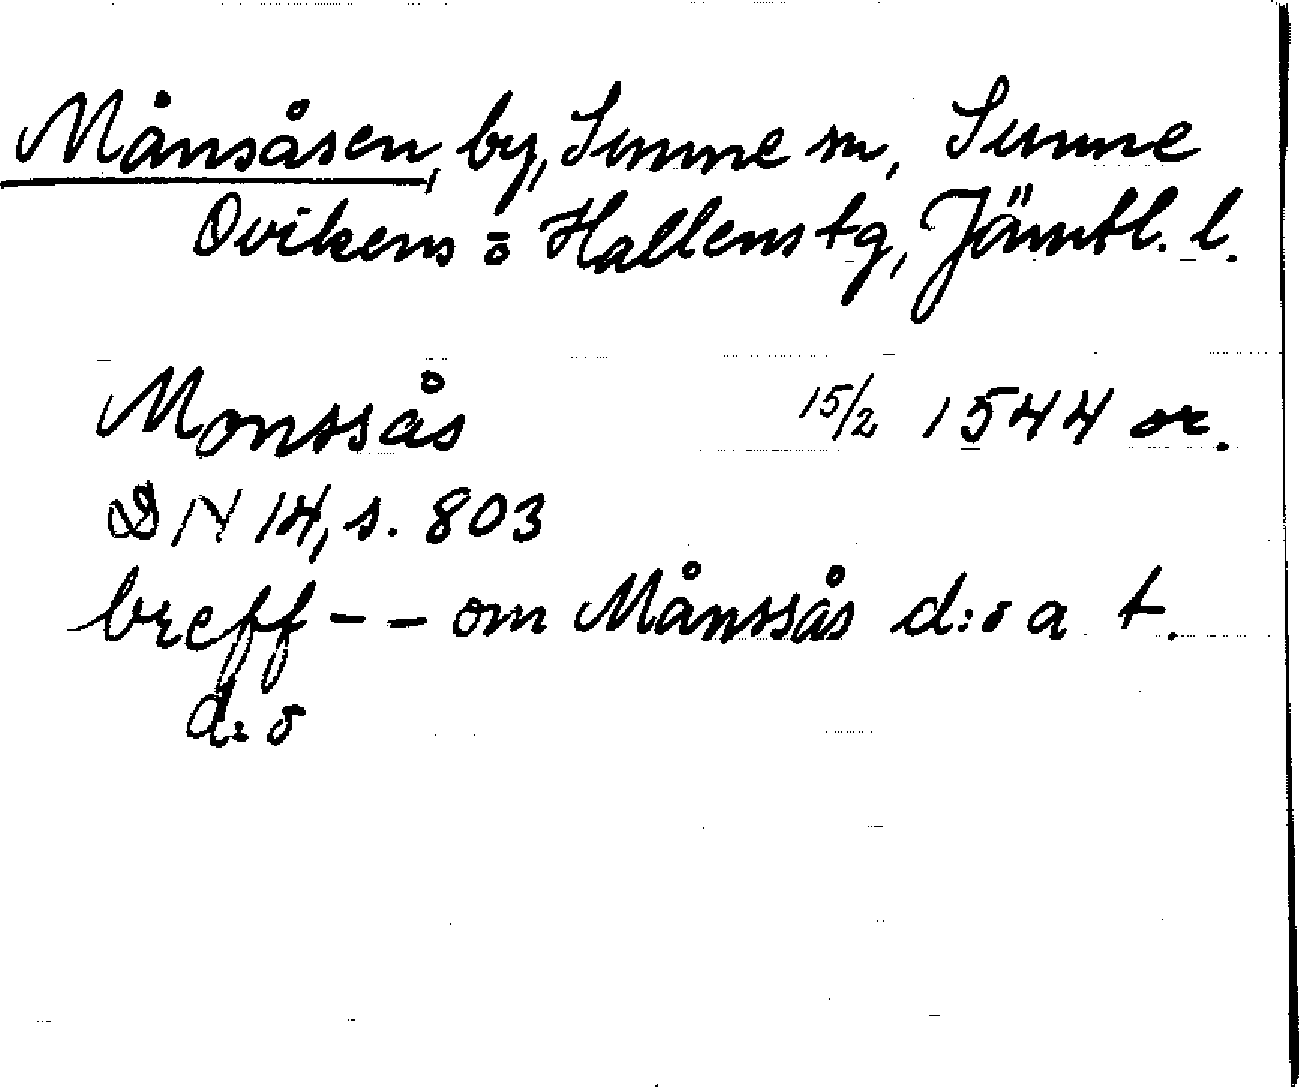 Månsåsen, by, Sunne sn, Sunne
Ovikens o Hallens tg, Jämtl. l.
Monssås 15/2 1544 or.
DN 14, s. 803
breff - - om Månssås d:o a t.
d:o